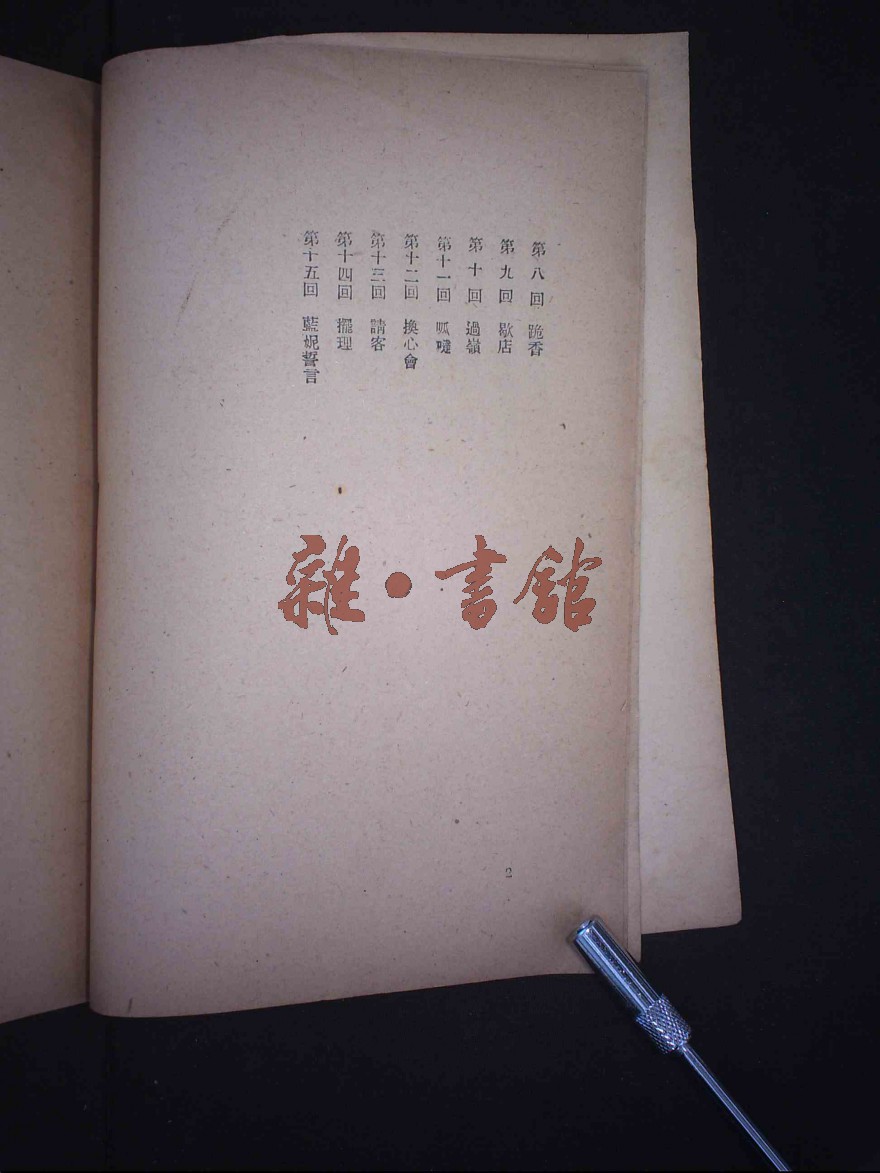 第八回 跪香
第九回 歇店
第十回 過嶺
第十一回 呱噠
第十二回 換心會
第十三回 請客
第十四回 擺理
第十五回 藍妮誓言
雜·書館
2